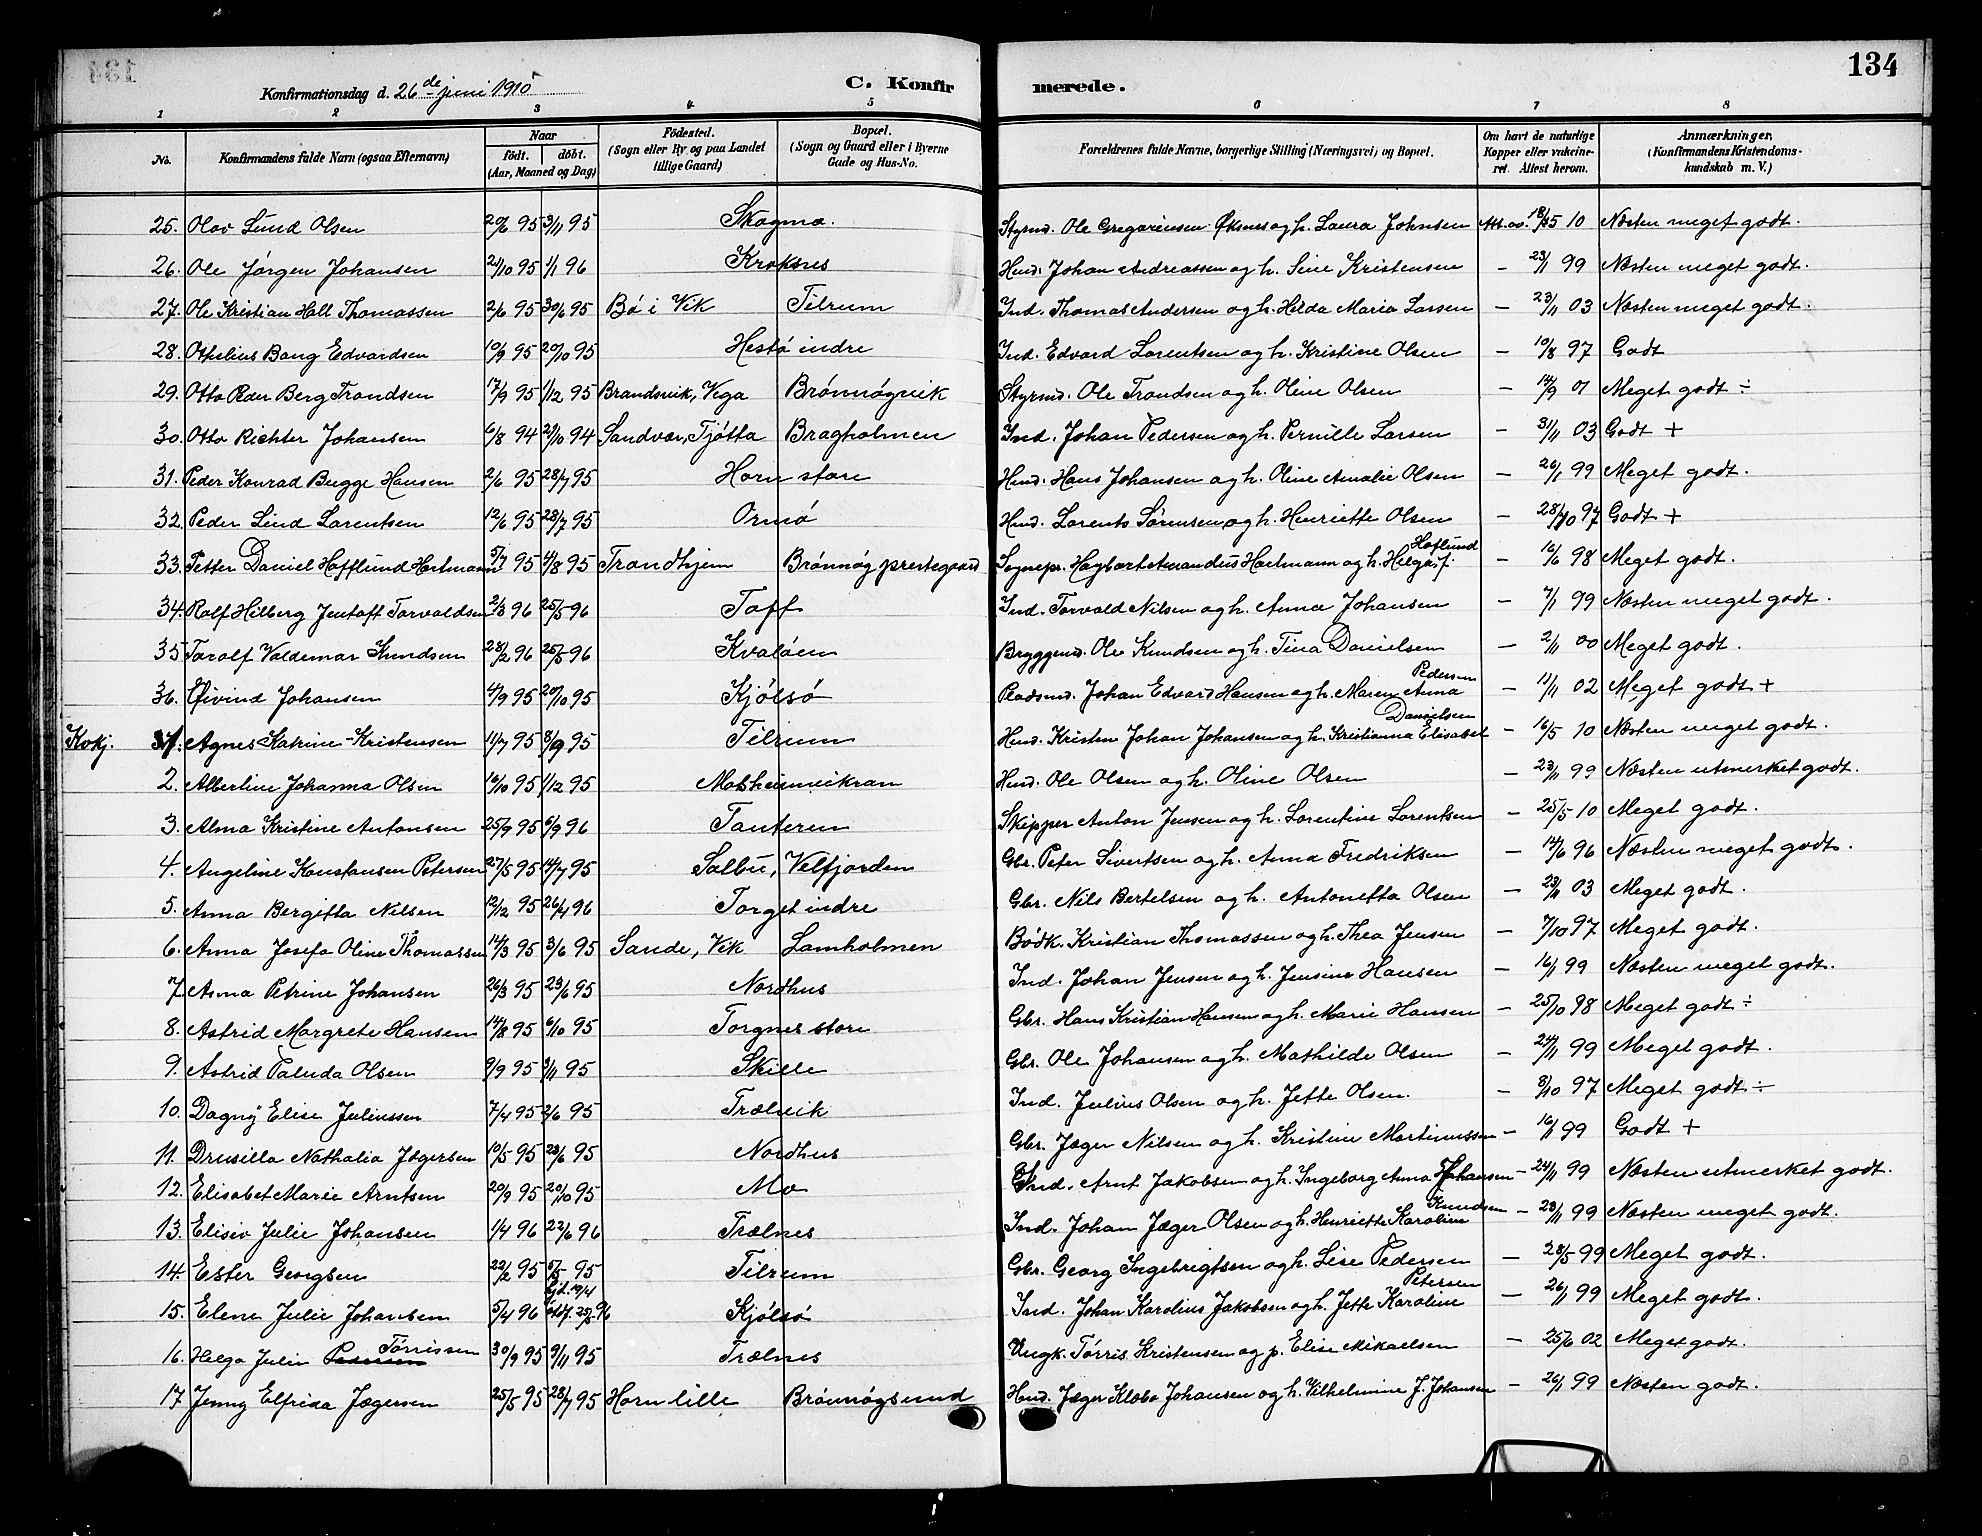 134
Konfirmationsdag d. 26de juni 1910
C. Konfirmerede.
1 2 3 4 5 6 7 8
No. Konfirmandens fulde Navn (ogsaa Efternavn) Naar født. døbt. (Aar, Maaned og Dag) Fødested. (Sogn eller By og paa Landet tillige Gaard) Bopæl. (Sogn og Gaard eller i Byerne Gade og Hus-No. Forældrenes fulde Navne, borgerlige Stilling (Næringsvei) og Bopæl. Om havt de naturlige Kopper eller vakcineret. Attest herom. Anmærkninger. (Konfirmandens Kristendomskundskab m. V.)
25. Olav Lund Olsen 20/6 95 3/11 95 Skogmo. Styrmd. Ole Gregoriusen Øksnes og h. Laura Johnsen Att. av. 18/5 10 Næsten meget godt.
26. Ole Jørgen Johansen 21/10 95 1/1 96 Kroksnes Hmd. Johan Andreassen og h. Sine Kristensen – 23/11 99 Næsten meget godt.
27. Ole Kristian Holl Thomassen 2/6 95 30/6 95 Bø i Vik Tilrum Ind. Thomas Andersen og h. Hilda Maria Larsen – 23/11 03 Næsten meget godt.
28. Othelius Bang Edvardsen 10/9 95 20/10 95 Hestø indre Ind. Edvard Lorentsen og h. Kristine Olsen – 10/8 97 Godt
29. Otto Peder Berg Trondsen 17/9 95 1/12 95 Brandsvik, Vega Brønnøyvik Styrmd. Ole Trondsen og h. Oline Olsen – 14/9 01 Meget godt ÷
30. Otto Richter Johansen 6/8 94 21/10 94 Sandvær, Tjøtta Bragholmen Ind. Johan Pedersen og h. Pernille Larsen – 31/11 03 Godt +
31. Peder Konrad Bugge Hansen 2/6 95 28/7 95 Horn store Hmd. Hans Johansen og h. Oline Amalie Olsen – 26/1 99 Meget godt.
32. Peder Lind Lorentsen 12/6 95 28/7 95 Ormø Hmd. Lorents Sørensen og h. Henriette Olsen – 28/10 97 Godt +
33. Petter Daniel Hofflund Hartmann 5/7 95 4/8 95 Trondhjem Brønnøy prestegaard Sognepr. Hagbart Amandus Hartmann og h. Helga, f. Hoflund – 16/6 98 Meget godt.
34. Rolf Hilberg Jentoft Torvaldsen 2/3 96 25/5 96 Toft Ind. Torvald Nilsen og h. Anna Johansen – 7/1 99 Næsten meget godt.
35 Toralf Valdemar Knudsen 28/2 96 25/5 96 Kvaløen Bryggemd. Ole Knudsen og h. Tina Danielsen – 2/11 00 Meget godt.
36. Øivind Johansen 4/9 95 20/10 95 Kjølsø Pladsmd. Johan Edvard Hansen og h. Maren Anna Pedersen – 11/11 02 Meget godt +
Kvkj. 1. Agnes Katrine Kristensen 11/7 95 8/9 95 Tilrum Hmd. Kristen Johan Johansen og h. Kristianna Elisabet Danielsen – 16/5 10 Næsten meget godt.
2. Albertine Johanna Olsen 16/10 95 1/12 95 Hmd. Ole Olsen og h. Oline Olsen – 23/11 99 Næsten utmerket godt.
3. Alma Kristine Antonsen 25/9 95 6/9 96 Tauteren Skipper Anton Jensen og h. Lorentine Lorentsen – 25/5 10 Meget godt.
4. Angeline Konstansen Petersen 27/5 95 14/7 95 Salbu, Velfjorden Gbr. Peter Sivertsen og h. Anna Fredriksen – 14/6 96 Næsten meget godt.
5. Anna Bergitta Nilsen 12/12 95 26/4 96 Torget indre Gbr. Nils Bertelsen og h. Antonetta Olsen – 23/11 03 Meget godt.
6. Anna Josefa Oline Thomassen 14/3 95 3/6 95 Sande, Vik Lamholmen Bødk. Kristian Thomassen og h. Thea Jensen – 7/10 97 Meget godt.
7. Asma Petrine Johansen 26/3 95 23/6 95 Nordhus Ind. Johan Jensen og h. Jensine Hansen – 16/11 99 Næsten meget godt.
8. Astrid Margrete Hansen 14/8 95 6/10 95 Torgnes store Gbr. Hans Kristian Hansen og h. Marie Hansen – 25/10 98 Meget godt ÷
9. Astrid Paluda Olsen 9/9 95 3/11 95 Skille Gbr. Ole Johansen og h. Mathilde Olsen – 24/11 99 Meget godt.
10. Dagny Elise Juliussen 7/4 95 2/6 95 Trælvik Ind. Julius Olsen og h. Jette Olsen. – 8/10 97 Meget godt ÷
11. Drusilla Nathalia Jægersen 10/5 95 23/6 95 Nordhus Gbr. Jæger Nilsen og h. Kristine Martinussen – 16/11 99 Godt +
12. Elisabet Marie Arntsen 20/9 95 20/10 95 Mo Ind. Arnt Jakobsen og h. Ingeborg Anna Johansen – 24/11 99 Næsten utmerket godt.
13. Elisiv Julie Johansen 1/4 96 22/6 96 Trælnes Ind. Johan Jæger Olsen og h. Henriette Karoline Knudsen – 23/11 99 Næsten meget godt.
14. Ester Georgsen 22/2 95 5/5 95 Tilrum Gbr. Georg Ingebrigtsen og h. Lise Pedersen – 28/5 99 Meget godt.
15. Elene Julie Johansen 5/4 96 hjd. 19/4 stdf. 25/5 96 Kjølsø Ind. Johan Karolius Jakobsen og h. Jette Karoline Petersen – 26/1 99 Meget godt.
16. Helga Julie Pedersen Tørrissen 30/9 95 9/11 95 Trælnes Ungk. Tørris Kristensen og p. Elise Mikaelsen – 25/6 02 Meget godt.
17 Jenny Elfrida Jægersen 25/5 95 28/7 95 Horn lille Brønnøysund Hmd. Jæger Klæbo Johansen og h. Vilhelmine J. Johansen – 26/1 99 Næsten godt.